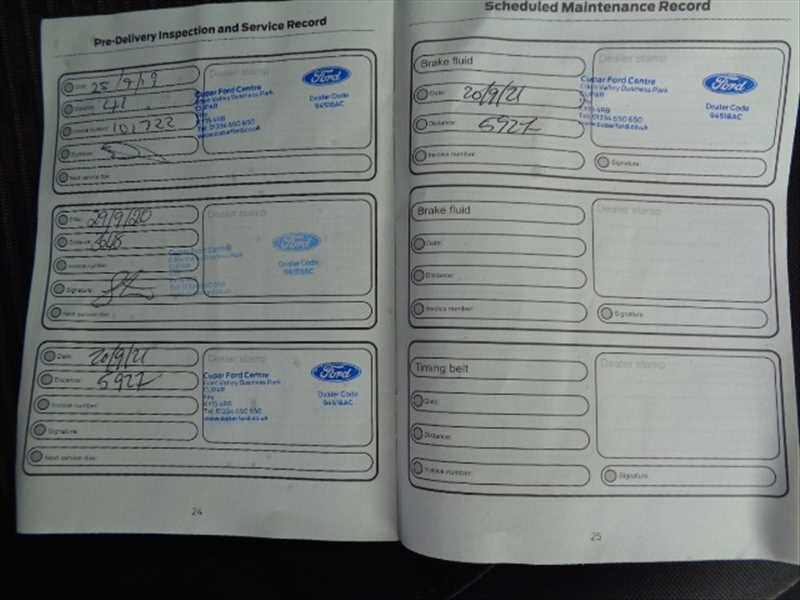 Pre-Delivery Inspection and Service Record
Date: 25/9/19
Distance: 41
Invoice number: 101722
Signature:
Next service due:
Dealer stamp
Cupar Ford Centre
Eden Valley Business Park
CUPAR
Fife
KY15 4RB
Tel: 01334 650 650
www.cuparford.co.uk
Ford
Dealer Code
94518AC
Date: 29/9/20
Distance:
Invoice number:
Signature:
Next service due:
Dealer stamp
Cupar Ford Centre
Eden Valley Business Park
CUPAR
Ford
Dealer Code
94518AC
Date: 20/9/21
Distance: 5927
Invoice number:
Signature:
Next service due:
Dealer stamp
Cupar Ford Centre
Eden Valley Business Park
CUPAR
Fife
KY15 4RB
Tel: 01334 650 650
www.cuparford.co.uk
Ford
Dealer Code
94518AC
24
Scheduled Maintenance Record
Brake fluid
Date: 20/9/21
Distance: 5927
Invoice number:
Dealer stamp
Cupar Ford Centre
Eden Valley Business Park
CUPAR
Fife
KY15 4RB
Tel: 01334 650 650
www.cuparford.co.uk
Ford
Dealer Code
94518AC
Signature:
Brake fluid
Date:
Distance:
Invoice number:
Dealer stamp
Signature:
Timing belt
Date:
Distance:
Invoice number:
Dealer stamp
Signature:
25